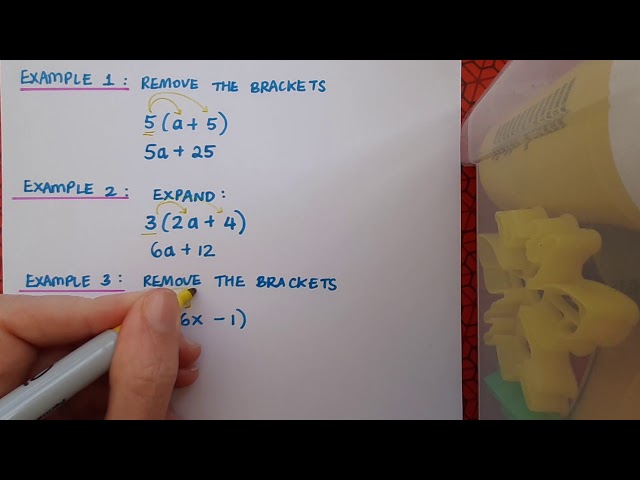 EXAMPLE 1: REMOVE THE BRACKETS
5(a + 5)
5a + 25
EXAMPLE 2: EXPAND:
3(2a + 4)
6a + 12
EXAMPLE 3: REMOVE THE BRACKETS
6x - 1)